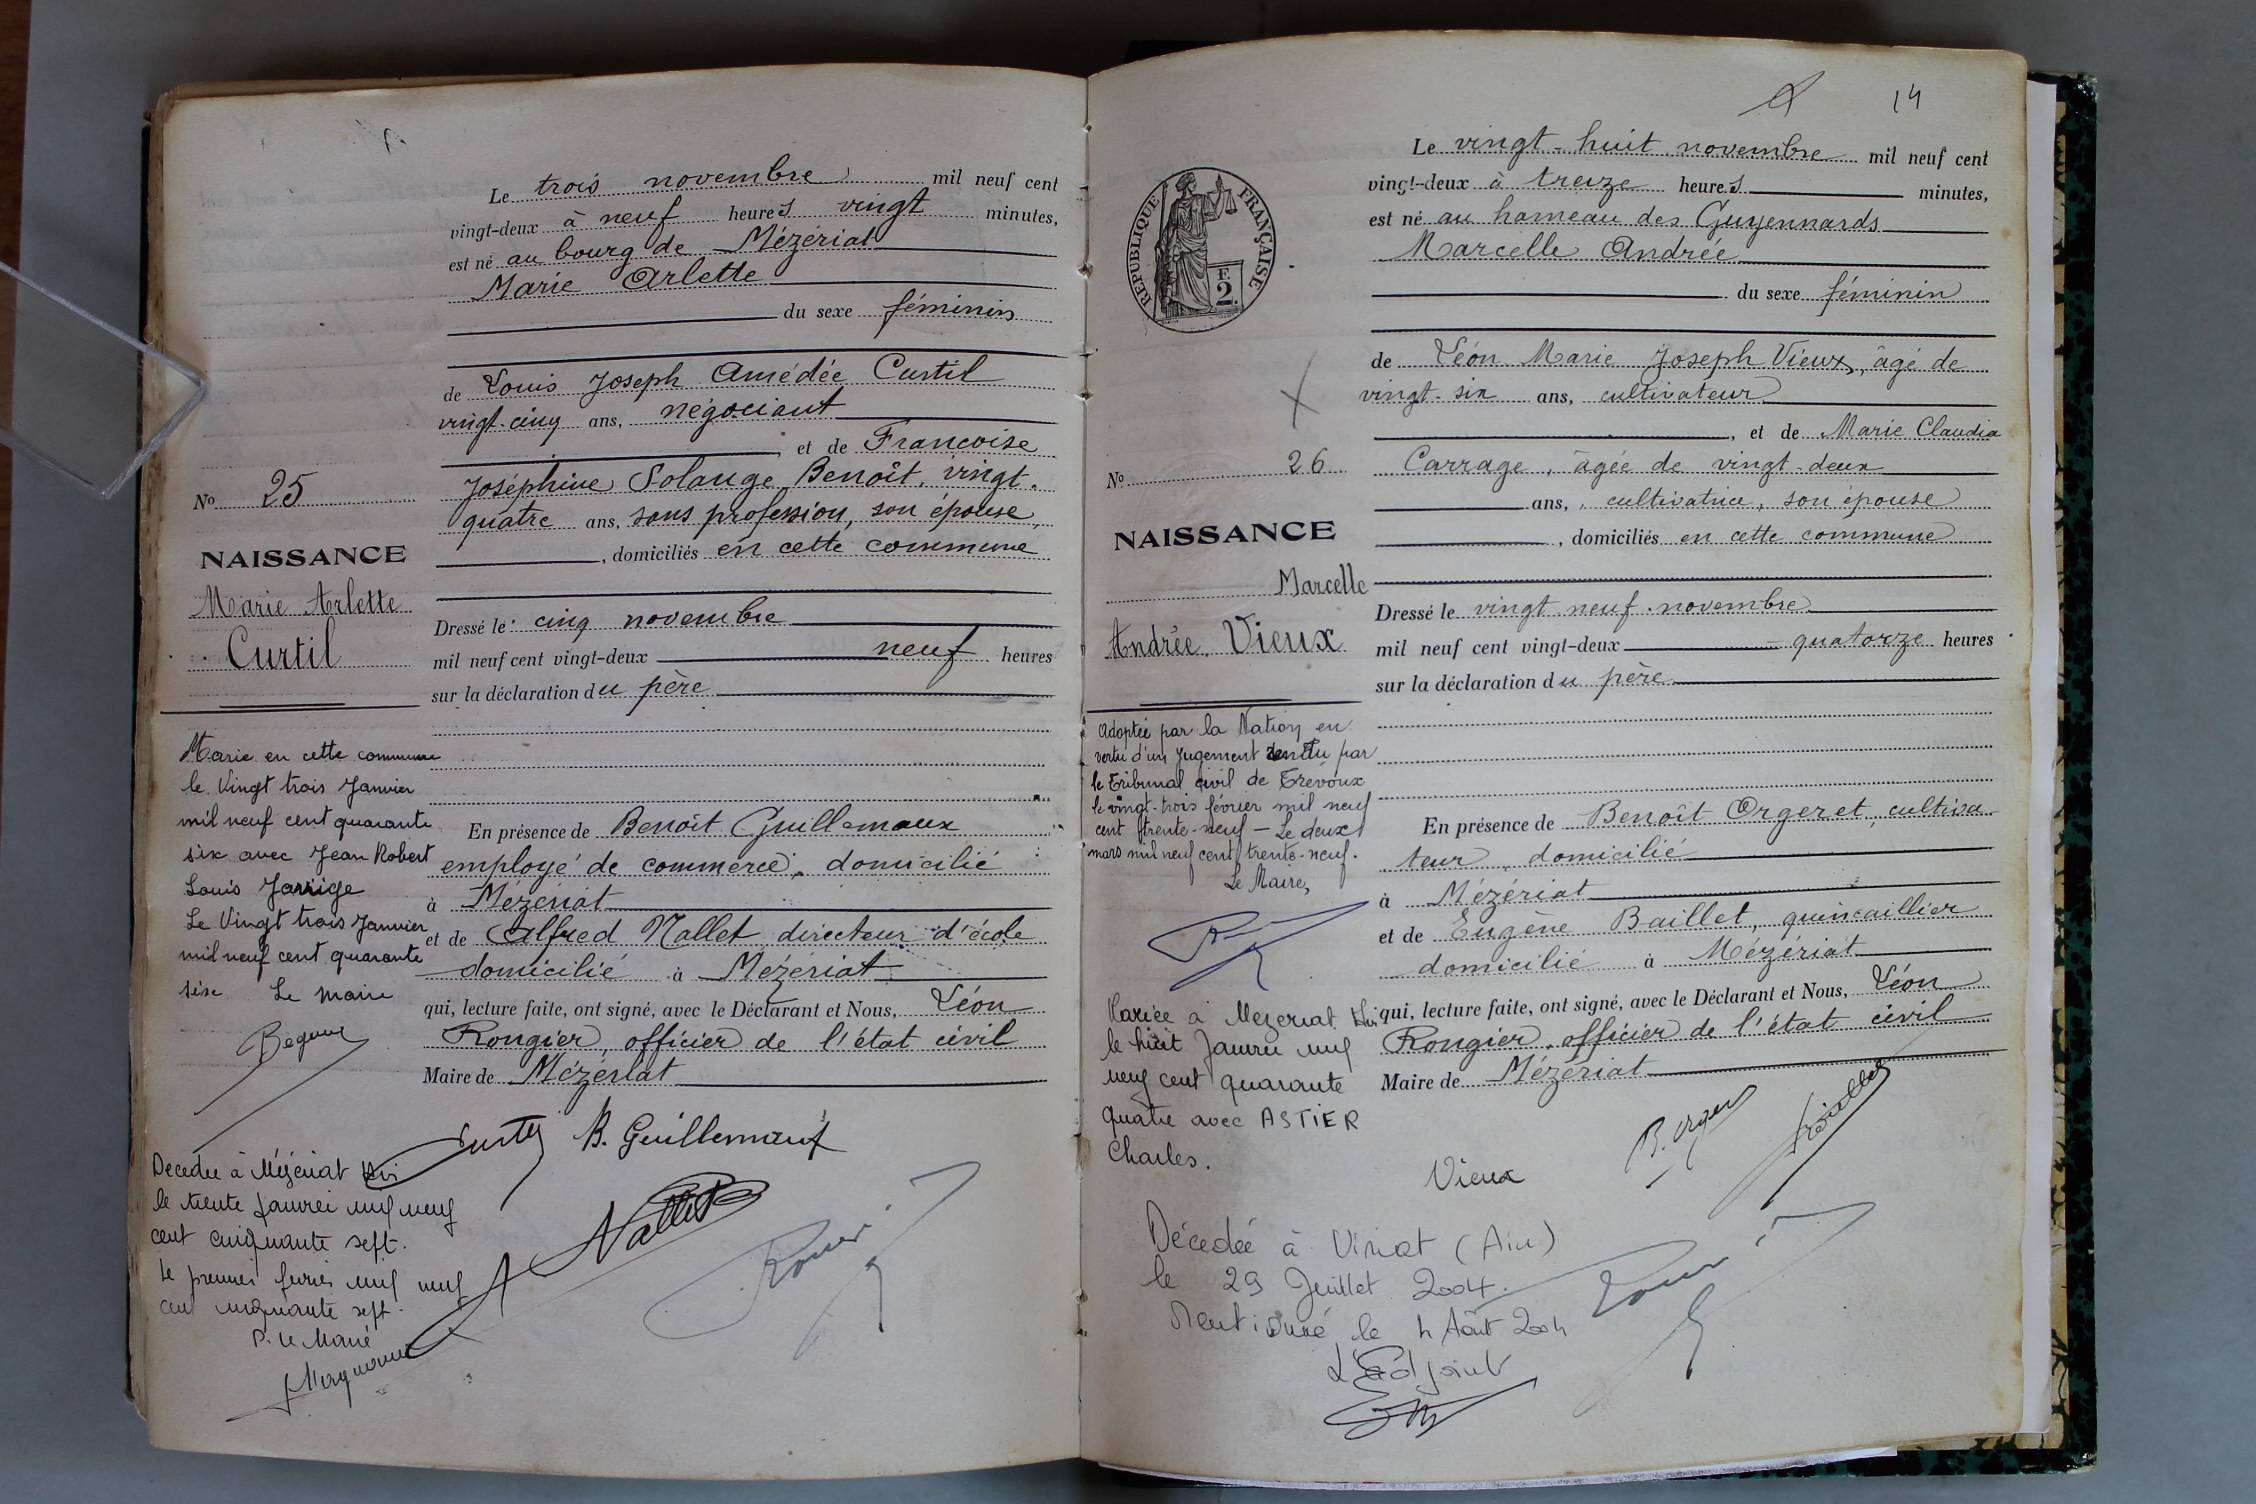 Le trois novembre mil neuf cent
vingt-deux à neuf heures vingt minutes,
est né au bourg de Mézériat
Marie Arlette
du sexe féminin
de Louis Joseph Amédée Curtil
vingt-cinq ans, négociant
, et de Francoise
Joséphine Solange Benoît, vingt-
quatre ans, sans profession, son épouse,
, domiciliés en cette commune
Dressé le cinq novembre
mil neuf cent vingt-deux neuf heures
sur la déclaration du père
En présence de Benoît Guillemaux
employé de commerce, domicilié
à Mézériat
et de Alfred Nallet, directeur d'école
domicilié à Mézériat
qui, lecture faite, ont signé, avec le Déclarant et Nous, Léon
Rongier, officier de l'état civil
Maire de Mézériat
Curtil B. Guillemaux
Nallet
No 25
NAISSANCE
Marie Arlette
Curtil
Marie en cette commune
le Vingt trois Janvier
mil neuf cent quarante
six avec Jean Robert
Louis Jarrige
Le Vingt trois Janvier
mil neuf cent quarante
six Le Maire
Décédée à Mézériat
le trente janvier mil neuf
cent cinquante sept.
Le premier février mil neuf
cent cinquante sept.
P. le Maire
14
RÉPUBLIQUE FRANÇAISE
F.
2.
Le vingt-huit novembre mil neuf cent
vingt-deux à treize heures minutes,
est né au hameau des Guyennards
Marcelle Andrée
du sexe féminin
de Léon Marie Joseph Vieux, âgé de
vingt-six ans, cultivateur
, et de Marie Claudia
Carrage, âgée de vingt-deux
ans, cultivatrice, son épouse
, domiciliés en cette commune
Dressé le vingt neuf novembre
mil neuf cent vingt-deux quatorze heures
sur la déclaration du père
En présence de Benoît Orgeret, cultiva-
teur, domicilié
à Mézériat
et de Eugène Baillet, quincaillier
domicilié à Mézériat
qui, lecture faite, ont signé, avec le Déclarant et Nous, Léon
Rongier, officier de l'état civil
Maire de Mézériat
Vieux
No 26
NAISSANCE
Marcelle
Andrée Vieux
Adoptée par la Nation en
vertu d'un Jugement rendu par
le Tribunal civil de Trévoux
le vingt-trois février mil neuf
cent trente-neuf - Le deux
mars mil neuf cent trente-neuf.
Le Maire,
Mariée à Mezeriat
le huit Janvier mil
neuf cent quarante
quatre avec ASTIER
Charles.
Décédée à Viriat (Ain)
le 29 Juillet 2004.
Mentionné le 4 Août 2004
L'Adjoint